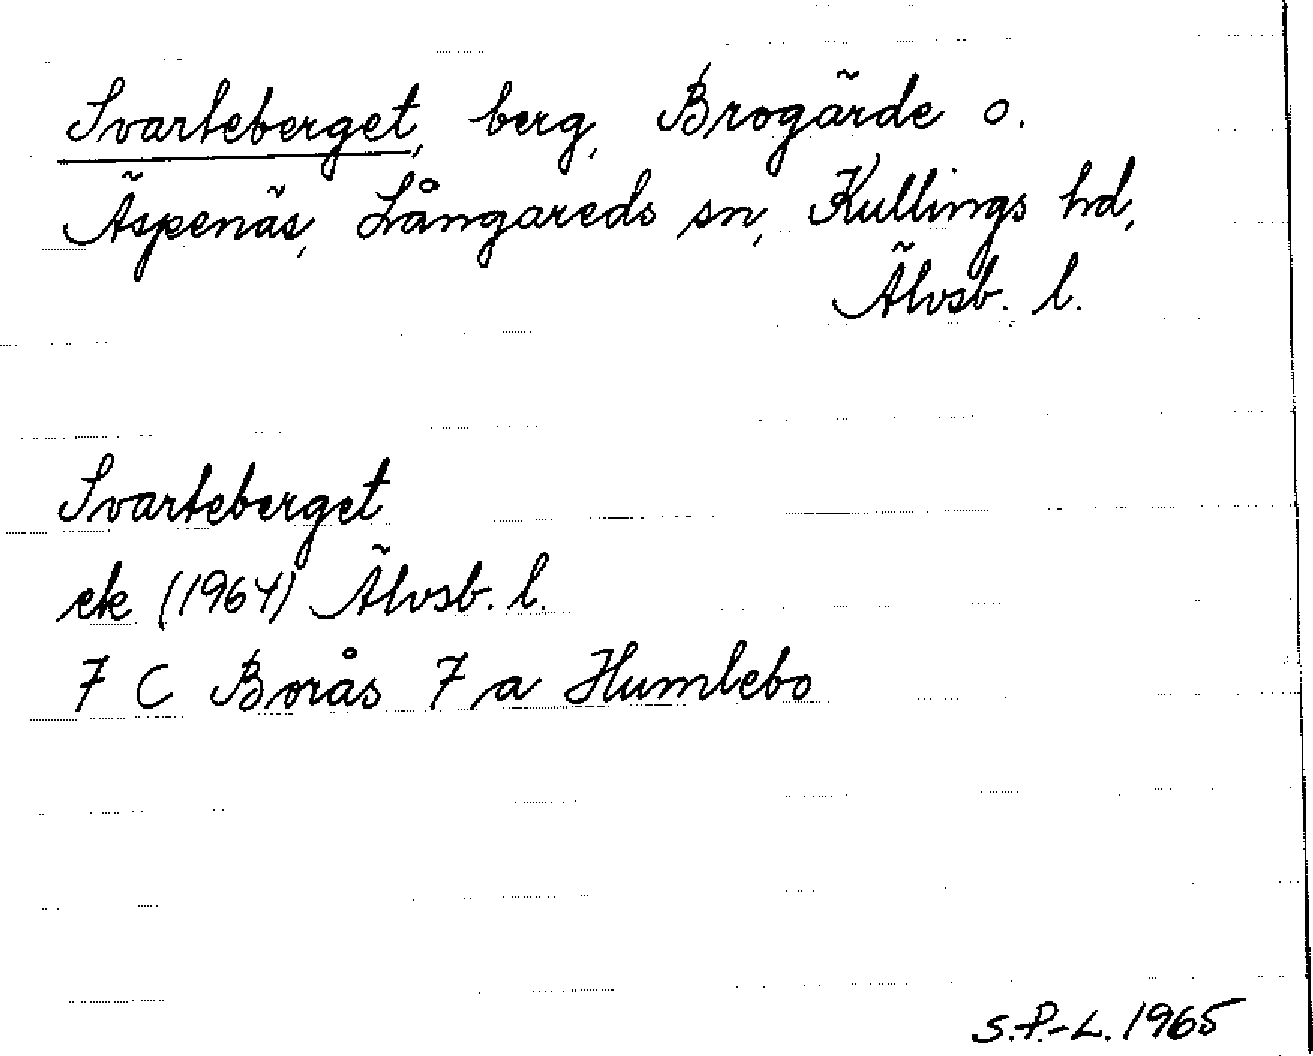 Svarteberget, berg, Brogärde o.
Äspenäs, Långareds sn, Kullings hd,
Älvsb. l.
Svarteberget
ek (1964) Älvsb. l.
7 C Borås 7 a Humlebo
S.P.-L. 1965